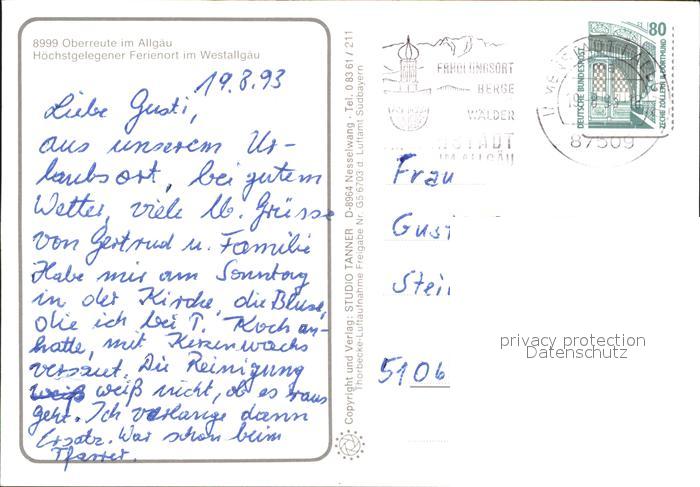 8999 Oberreute im Allgäu
Höchstgelegener Ferienort im Westallgäu
19.8.93
Liebe Gusti,
aus unserem Ur-
laubsort, bei gutem
Wetter, viele lb. Grüsse
von Gertrud u. Familie
Habe mir am Sonntag
in der Kirche, die Bluse,
die ich bei T. Koch an-
hatte, mit Kerzenwachs
versaut. Die Reinigung
weiß nicht, ob es raus
geht. Ich verlange dann
Ersatz. War schon beim
Pfarrer.
Copyright und Verlag: STUDIO TANNER D-8964 Nesselwang · Tel. 0 83 61 / 211
Thorbecke-Luftaufnahme Freigabe Nr. GS 6703 d. Luftamt Südbayern
ERHOLUNGSORT
BERGE
WÄLDER
STADT
IM ALLGÄU
87509
80
DEUTSCHE BUNDESPOST
ZECHE ZOLLERN II DORTMUND
Frau
Gusti
Stei
5106
privacy protection
Datenschutz